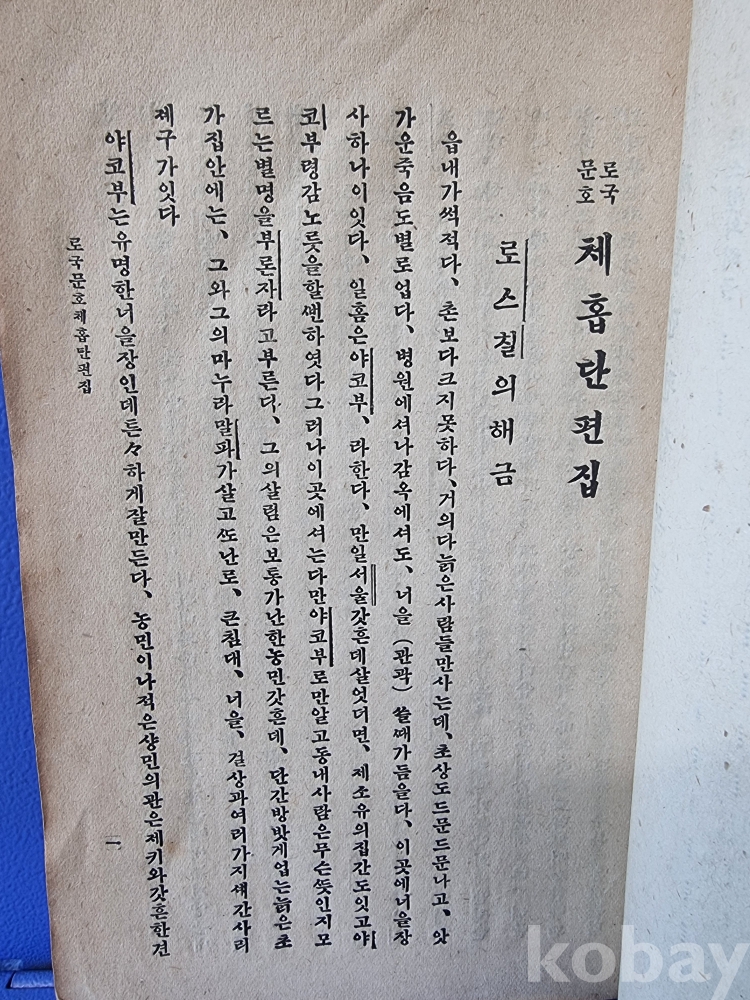 로국
문호
체홉단편집
로스칠의해금
읍내가썩적다、촌보다크지못하다、거의다늙은사람들만사는데、초상도드문드문나고、앗
가운죽음도별로업다、병원에셔나감옥에셔도、너을(관곽)쓸때가듬을다、이곳에너을장
사하나이잇다、일홈은야코부、라한다、만일서울갓흔데살엇더면、제소유의집간도잇고야
코부령감노릇을할뻔하엿다그러나이곳에셔는다만야코부로만알고동내사람은무슨뜻인지모
르는별명을부론자라고부른다、그의살림은보통가난한농민갓흔데、단간방밧게업는늙은초
가집안에는、그와그의마누라말파가살고또난로、큰침대、너을、걸상과여러가지세간사리
졔구가잇다
야코부는유명한너을장인데튼々하게잘만든다、농민이나적은샹민의관은제키와갓흔한견
로국문호체홉단편집
一
kobay